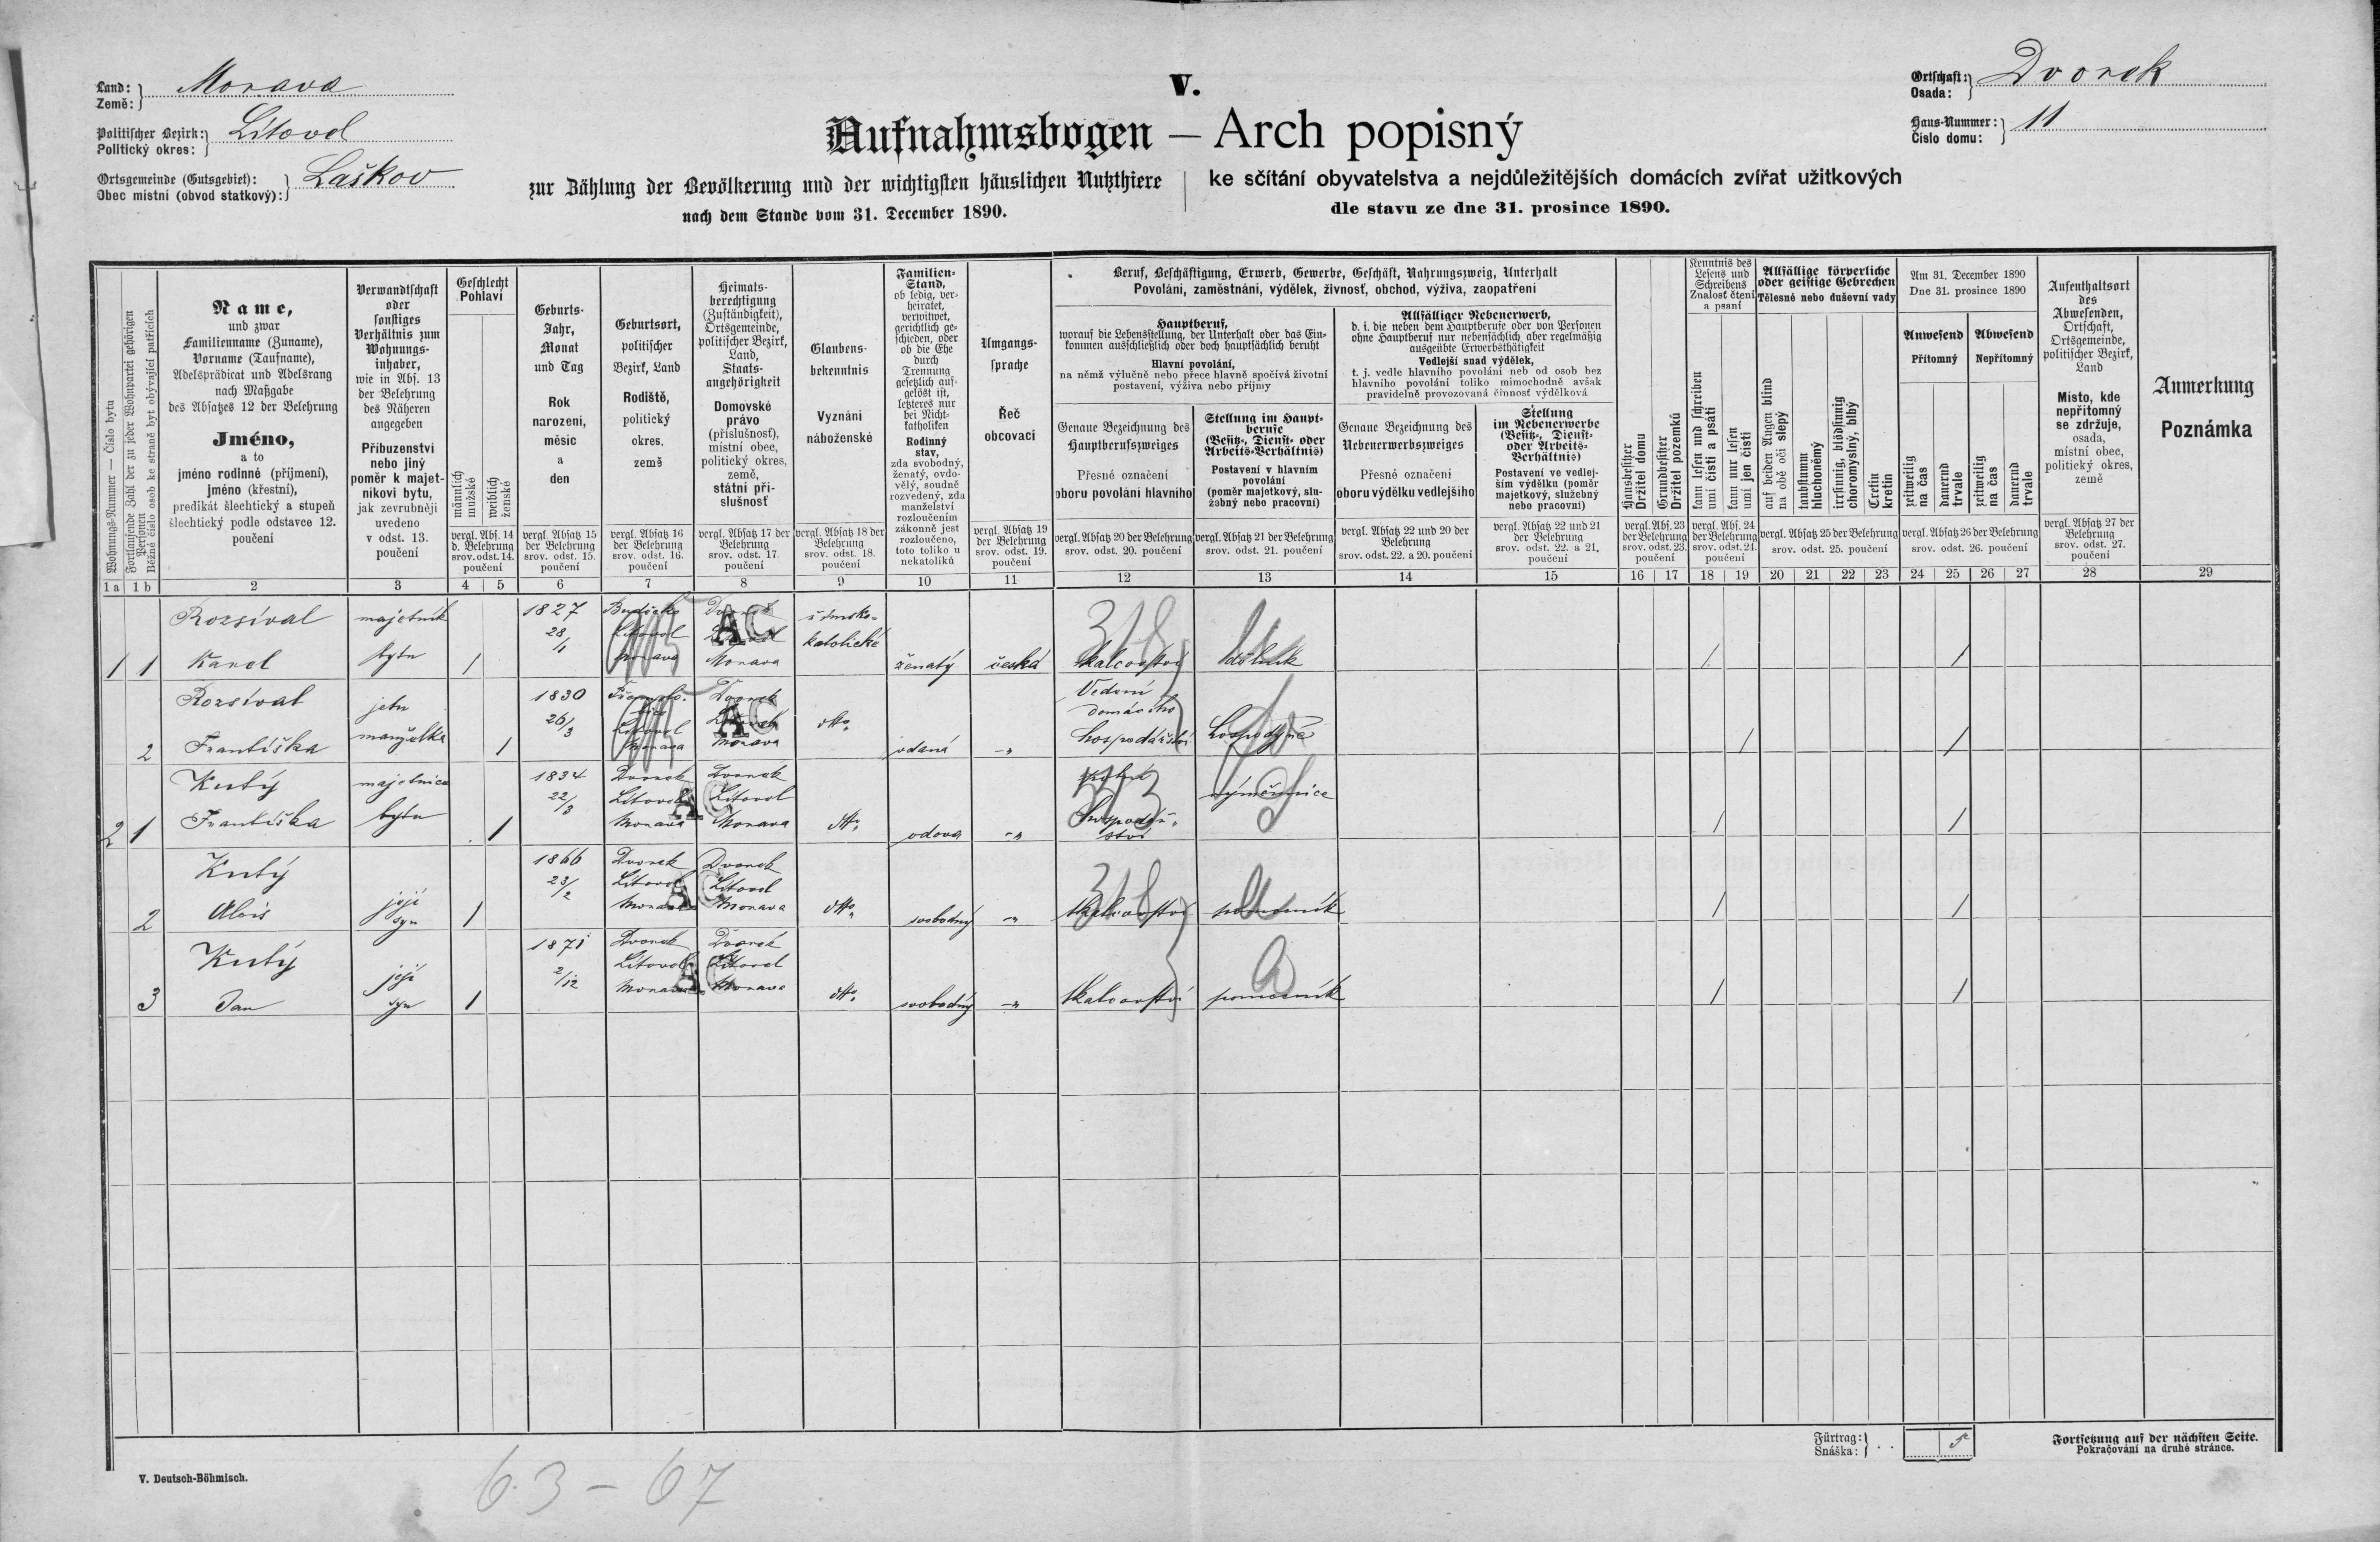 V.
Land: Země: Morava
Politischer Bezirk: Politický okres: Litovel
Ortsgemeinde (Gutsgebiet): Obec místní (obvod statkový): Laškov
Ortschaft: Osada: Dvorek
Haus-Nummer: Číslo domu: 11
Aufnahmsbogen — Arch popisný
zur Zählung der Bevölkerung und der wichtigsten häuslichen Nutzthiere
nach dem Stande vom 31. December 1890.
ke sčítání obyvatelstva a nejdůležitějších domácích zvířat užitkových
dle stavu ze dne 31. prosince 1890.
Wohnungs-Nummer — Číslo bytu
Fortlaufende Zahl der zu jeder Wohnpartei gehörigen Personen
Běžné číslo osob ke straně byt obývající patřících
Name,
und zwar
Familienname (Zuname),
Vorname (Taufname),
Adelsprädicat und Adelsrang
nach Maßgabe
des Absatzes 12 der Belehrung
Jméno,
a to
jméno rodinné (příjmení),
jméno (křestní),
predikát šlechtický a stupeň
šlechtický podle odstavce 12.
poučení
Verwandtschaft
oder
sonstiges
Verhältnis zum
Wohnungs-
inhaber,
wie in Abs. 13
der Belehrung
des Näheren
angegeben
Příbuzenství
nebo jiný
poměr k majet-
níkovi bytu,
jak zevrubněji
uvedeno
v odst. 13.
poučení
Geschlecht
Pohlaví
männlich
mužské
weiblich
ženské
vergl. Abs. 14
d. Belehrung
srov. odst. 14.
poučení
Geburts-
Jahr,
Monat
und Tag
Rok
narození,
měsíc
a
den
vergl. Absatz 15
der Belehrung
srov. odst. 15.
poučení
Geburtsort,
politischer
Bezirk, Land
Rodiště,
politický
okres,
země
vergl. Absatz 16
der Belehrung
srov. odst. 16.
poučení
Heimats-
berechtigung
(Zuständigkeit),
Ortsgemeinde,
politischer Bezirk,
Land,
Staats-
angehörigkeit
Domovské
právo
(příslušnosť),
místní obec,
politický okres,
země,
státní pří-
slušnosť
vergl. Absatz 17 der
Belehrung
srov. odst. 17.
poučení
Glaubens-
bekenntnis
Vyznání
náboženské
vergl. Absatz 18 der
Belehrung
srov. odst. 18.
poučení
Familien-
Stand,
ob ledig, ver-
heiratet,
verwitwet,
gerichtlich ge-
schieden, oder
ob die Ehe
durch
Trennung
gesetzlich auf-
gelöst ist,
letzteres nur
bei Nicht-
katholiken
Rodinný
stav,
zda svobodný,
ženatý, ovdo-
vělý, soudně
rozvedený, zda
manželství
rozloučením
zákonně jest
rozloučeno,
toto toliko u
nekatolíků
Umgangs-
sprache
Řeč
obcovací
vergl. Absatz 19
der Belehrung
srov. odst. 19.
poučení
Beruf, Beschäftigung, Erwerb, Gewerbe, Geschäft, Nahrungszweig, Unterhalt
Povolání, zaměstnání, výdělek, živnosť, obchod, výživa, zaopatření
Hauptberuf,
worauf die Lebensstellung, der Unterhalt oder das Ein-
kommen ausschließlich oder doch hauptsächlich beruht
Hlavní povolání,
na němž výlučně nebo přece hlavně spočívá životní
postavení, výživa nebo příjmy
Genaue Bezeichnung des
Hauptberufszweiges
Přesné označení
oboru povolání hlavního
vergl. Absatz 20 der Belehrung
srov. odst. 20. poučení
Stellung im Haupt-
berufe
(Besitz-, Dienst- oder
Arbeits-Verhältnis)
Postavení v hlavním
povolání
(poměr majetkový, slu-
žebný nebo pracovní)
vergl. Absatz 21 der Belehrung
srov. odst. 21. poučení
Allfälliger Nebenerwerb,
d. i. die neben dem Hauptberufe oder von Personen
ohne Hauptberuf nur nebensächlich aber regelmäßig
ausgeübte Erwerbsthätigkeit
Vedlejší snad výdělek,
t. j. vedle hlavního povolání neb od osob bez
hlavního povolání toliko mimochodně avšak
pravidelně provozovaná činnosť výdělková
Genaue Bezeichnung des
Nebenerwerbszweiges
Přesné označení
oboru výdělku vedlejšího
vergl. Absatz 22 und 20 der
Belehrung
srov. odst. 22. a 20. poučení
Stellung
im Nebenerwerbe
(Besitz-, Dienst-
oder Arbeits-
Verhältnis)
Postavení ve vedlej-
ším výdělku (poměr
majetkový, služebný
nebo pracovní)
vergl. Absatz 22 und 21
der Belehrung
srov. odst. 22. a 21.
poučení
Hausbesitzer
Držitel domu
Grundbesitzer
Držitel pozemků
vergl. Abs. 23
der Belehrung
srov. odst. 23.
poučení
Kenntnis des
Lesens und
Schreibens
Znalosť čtení
a psaní
kann lesen und schreiben
umí čísti a psáti
kann nur lesen
umí jen čísti
vergl. Abs. 24
der Belehrung
srov. odst. 24.
poučení
Allfällige körperliche
oder geistige Gebrechen
Tělesné nebo duševní vady
auf beiden Augen blind
na obě oči slepý
taubstumm
hluchoněmý
irrsinnig, blödsinnig
choromyslný, blbý
Cretin
kretin
vergl. Absatz 25 der Belehrung
srov. odst. 25. poučení
Am 31. December 1890
Dne 31. prosince 1890
Anwesend
Přítomný
Abwesend
Nepřítomný
zeitweilig
na čas
dauernd
trvale
zeitweilig
na čas
dauernd
trvale
vergl. Absatz 26 der Belehrung
srov. odst. 26. poučení
Aufenthaltsort
des
Abwesenden,
Ortschaft,
Ortsgemeinde,
politischer Bezirk,
Land
Místo, kde
nepřítomný
se zdržuje,
osada,
místní obec,
politický okres,
země
vergl. Absatz 27 der
Belehrung
srov. odst. 27.
poučení
Anmerkung
Poznámka
1a 1b 2 3 4 5 6 7 8 9 10 11 12 13 14 15 16 17 18 19 20 21 22 23 24 25 26 27 28 29
1 1 Rozsíval Karel majetník bytu / 1827 28/1 Litovel Morava Dvorek Litovel Morava římsko-katolické ženatý česká dělník / /
318
AC
2 Rozsíval Františka jeho manželka / 1830 26/3 Litovel Morava Dvorek Litovel Morava dtto vdaná -"- Vedení domácího hospodářství hospodyně / /
AC
2 1 Kutý Františka majetnice bytu / 1834 22/3 Dvorek Litovel Morava Dvorek Litovel Morava dtto vdova -"- hospodářství výměnnice / /
AC
2 Kutý Alois její syn / 1866 23/2 Dvorek Litovel Morava Dvorek Litovel Morava dtto svobodný -"- tkalcovství pomocník / /
318
AC
3 Kutý Jan její syn / 1871 2/12 Dvorek Litovel Morava Dvorek Litovel Morava dtto svobodný -"- tkalcovství pomocník / /
AC
Fürtrag: Snáška: 5
Fortsetzung auf der nächsten Seite.
Pokračování na druhé stránce.
V. Deutsch-Böhmisch.
63 - 67